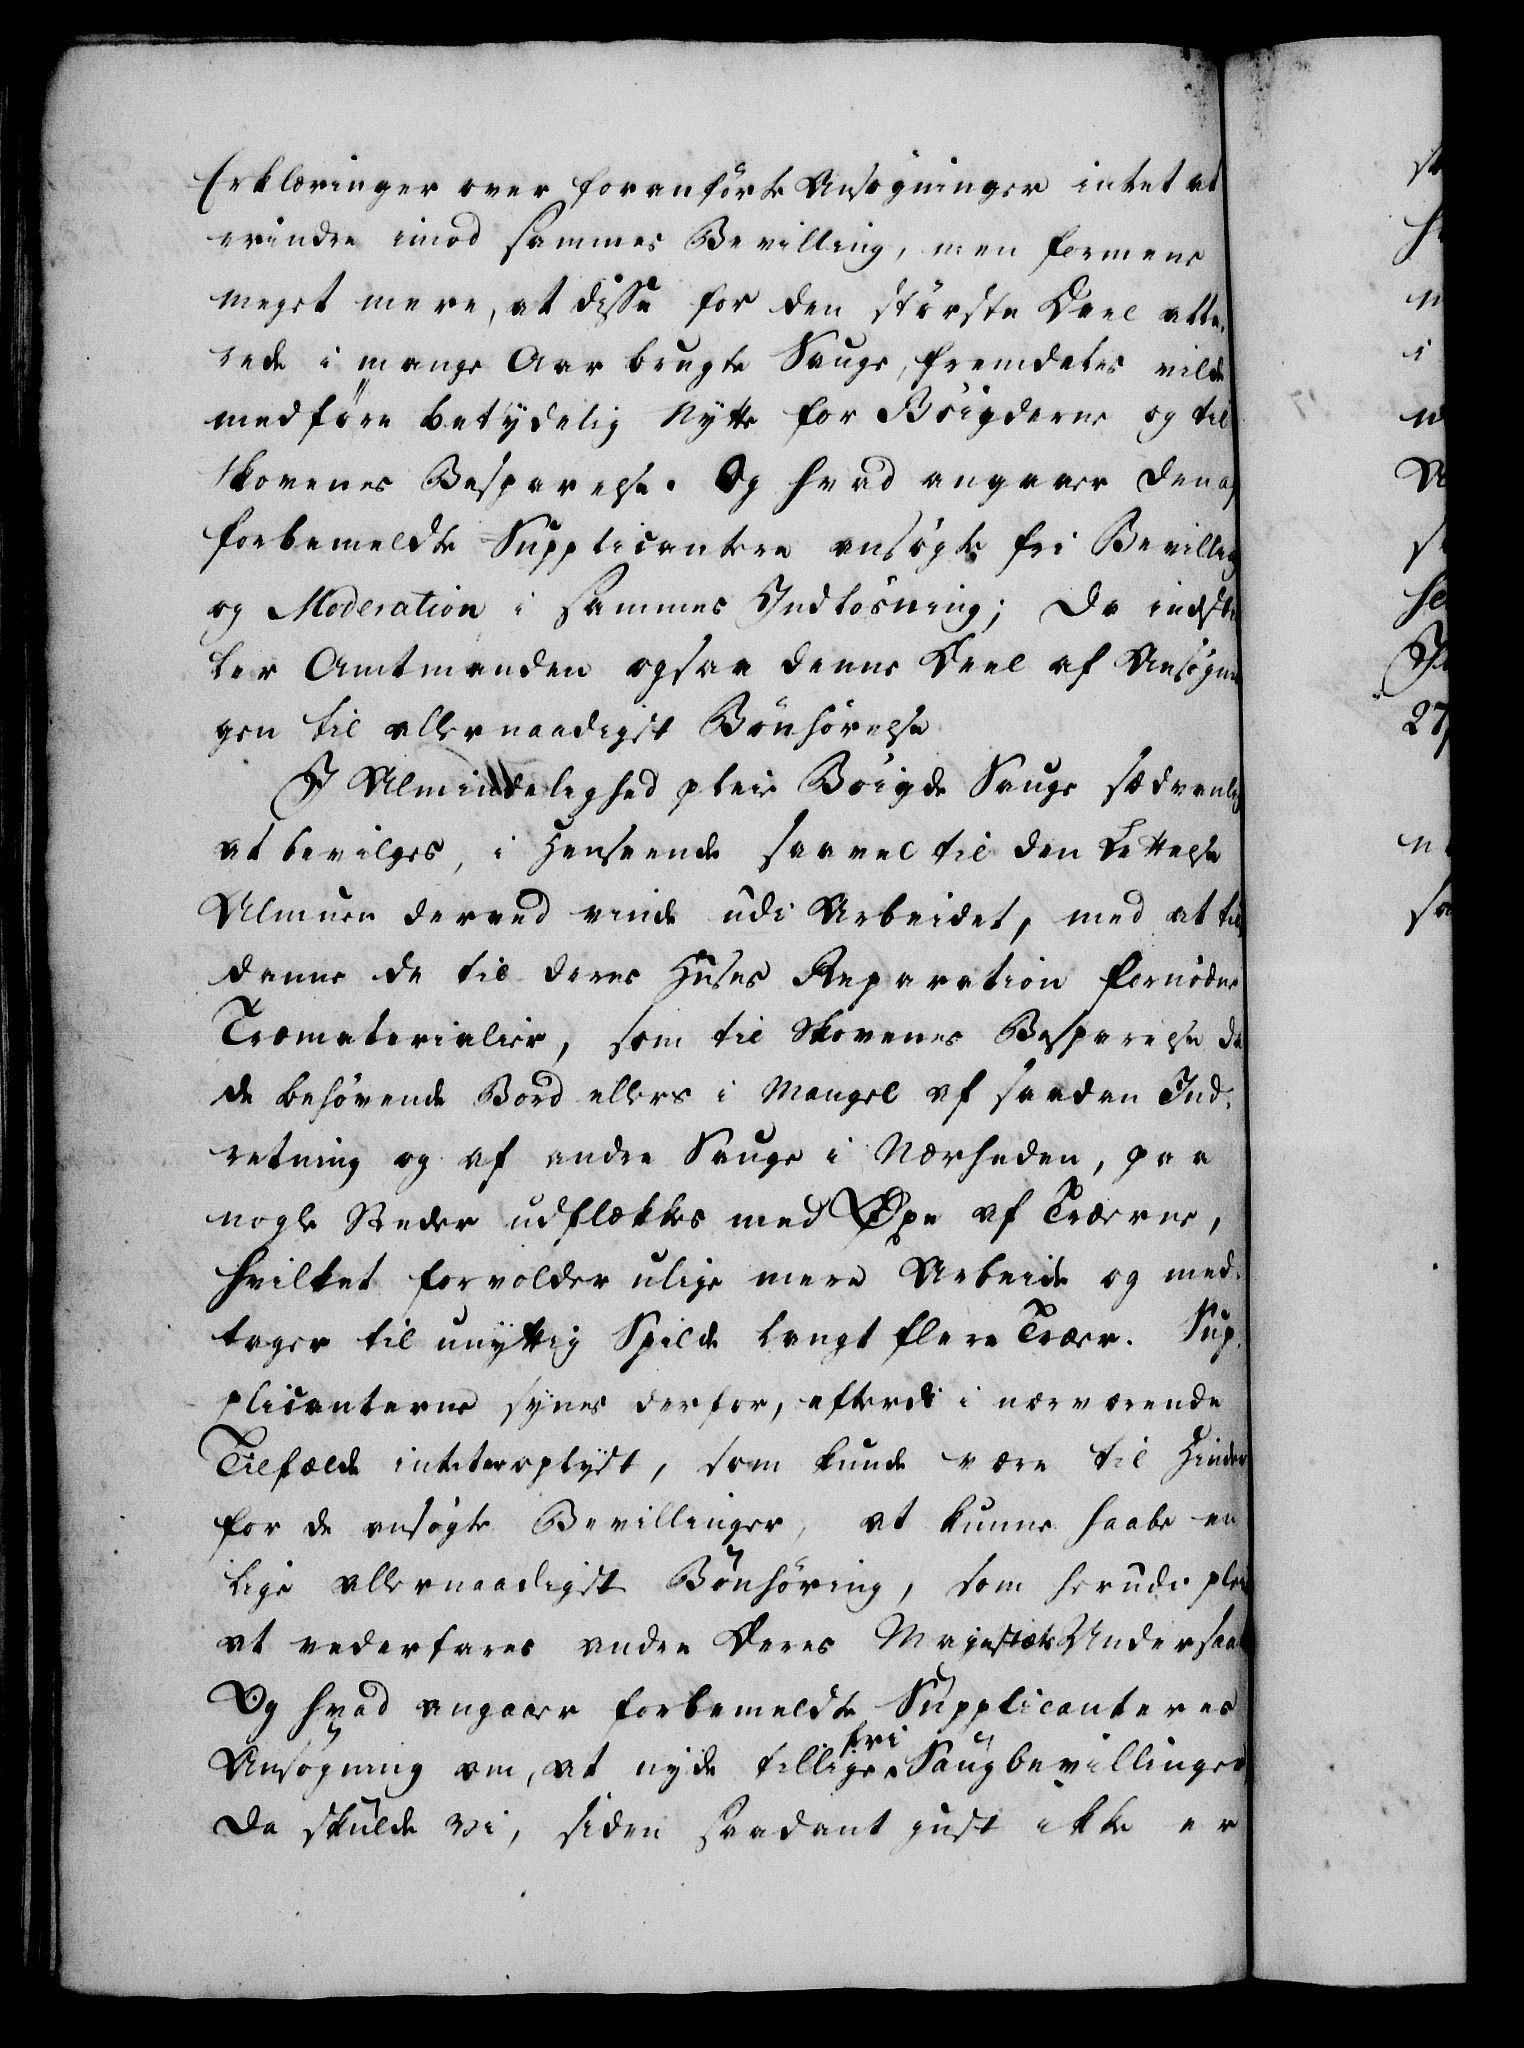 Erklæringer over foranførte Ansøgninger intet at
erindre imod sammes Bevilling, men formene
meget mere, at disse for den største Deel alle-
rede i mange Aar brugte Sauge, fremdeles vilde
medføre betydelig Nytte for Böigderne og til
Skovenes Besparelse. Og hvad angaaer den af
forbemeldte Supplicantere ansøgte fri Bevilling
og Moderation i sammes Indløsning; Da indstil
ler Amtmanden ogsaa denne Deel af Ansøgnin
gen til allernaadigst Bönhörelse
I Almindelighed pleie Böigde Sauge sædvanlig
at bevilges, i Henseende saavel til den Lettelse
Almuen derved vinde udi Arbeidet, med at til
danne de til deres Huses Reparation fornödne
Træmaterialier, som til Skovenes Besparelse da
de behövende Bord ellers i Mangel af saadan Ind-
retning og af andre Sauge i Nærheden, paa
nogle Steder udflækkes med Öxe af Træerne,
hvilket forvolder ulige mere Arbeide og med-
tager til unyttig Spilde langt flere Træer. Sup-
plicanterne synes derfor, efterdi i nærværende
Tilfælde intet er oplyst, som kunde være til Hinder
for de ansøgte Bevillinger, at kunne haabe en
lige allernaadigst Bönhöring, som herudi pleie
at vederfares andre Deres Majestæts Undersaat
Og hvad angaaer forbemeldte Supplicanteres
Ansøgning om, at nyde tillige fri Saugbevillinger
Da skulde vi, siden saadant just ikke er
st
27